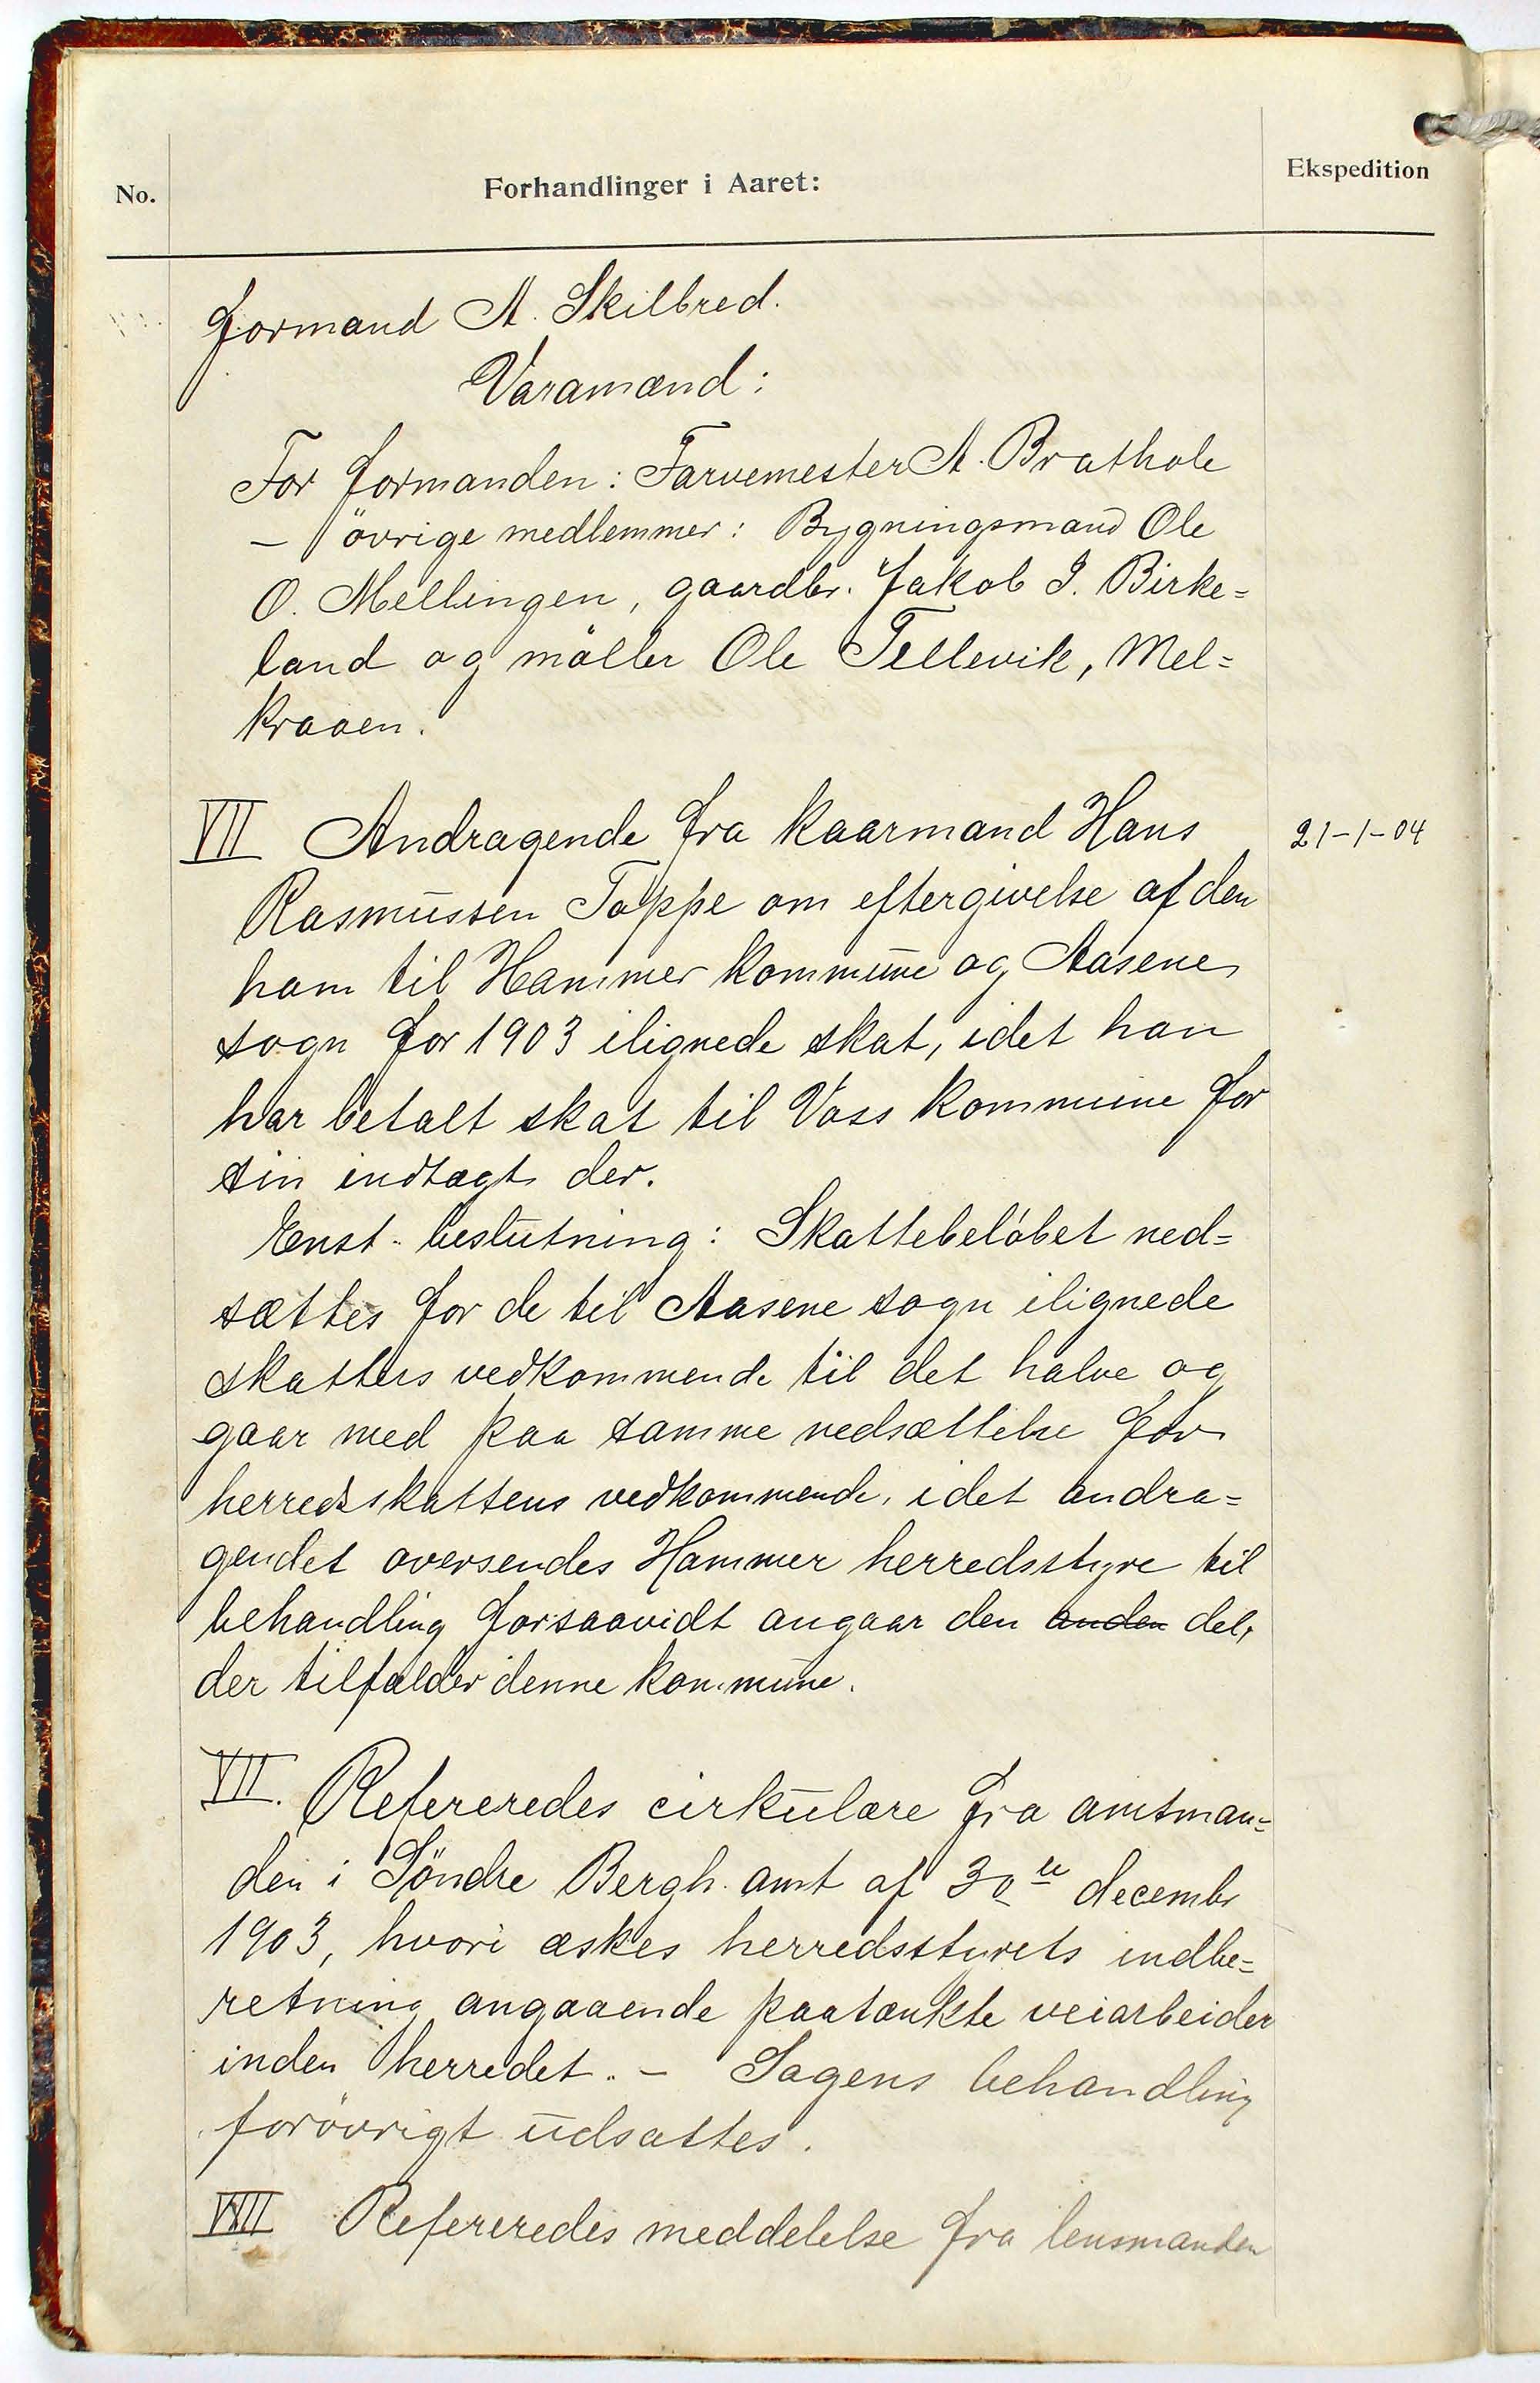 No.
Forhandlinger i Aaret:
Ekspedition
formand A. Skilbred.
Varamænd:
For formanden: Farvemester A. Brathole
— övrige medlemmer: Bygningsmand Ole
O. Mellingen, gaardbr. Jakob I. Birke=
land og möller Ole Tellevik, Mel=
kraaen.
VII Andragende fra kaarmand Hans
21-1-04
Rasmussen Toppe om eftergivelse af den
ham til Hammer kommune og Aasene
sogn for 1903 ilignede skat, idet han
har betalt skat til Voss kommune for
sin indtægt der.
Enst. beslutning: Skattebelöbet ned=
sættes for de til Aasene sogn ilignede
skatters vedkommende til det halve og
gaar med paa samme nedsættelse for
herredsskattens vedkommende, idet andra=
gendet oversendes Hammer herredsstyre til
behandling forsaavidt angaar den anden del,
der tilfalder denne kommune.
VII. Refereredes cirkulære fra amtman=
den i Söndre Bergh. amt af 30te decembr
1903, hvori æskes herredsstyrets indbe=
retning angaaende paatænkte veiarbeider
inden herredet. — Sagens behandling
forövrigt udsattes.
VIII Refereredes meddelelse fra lensmanden